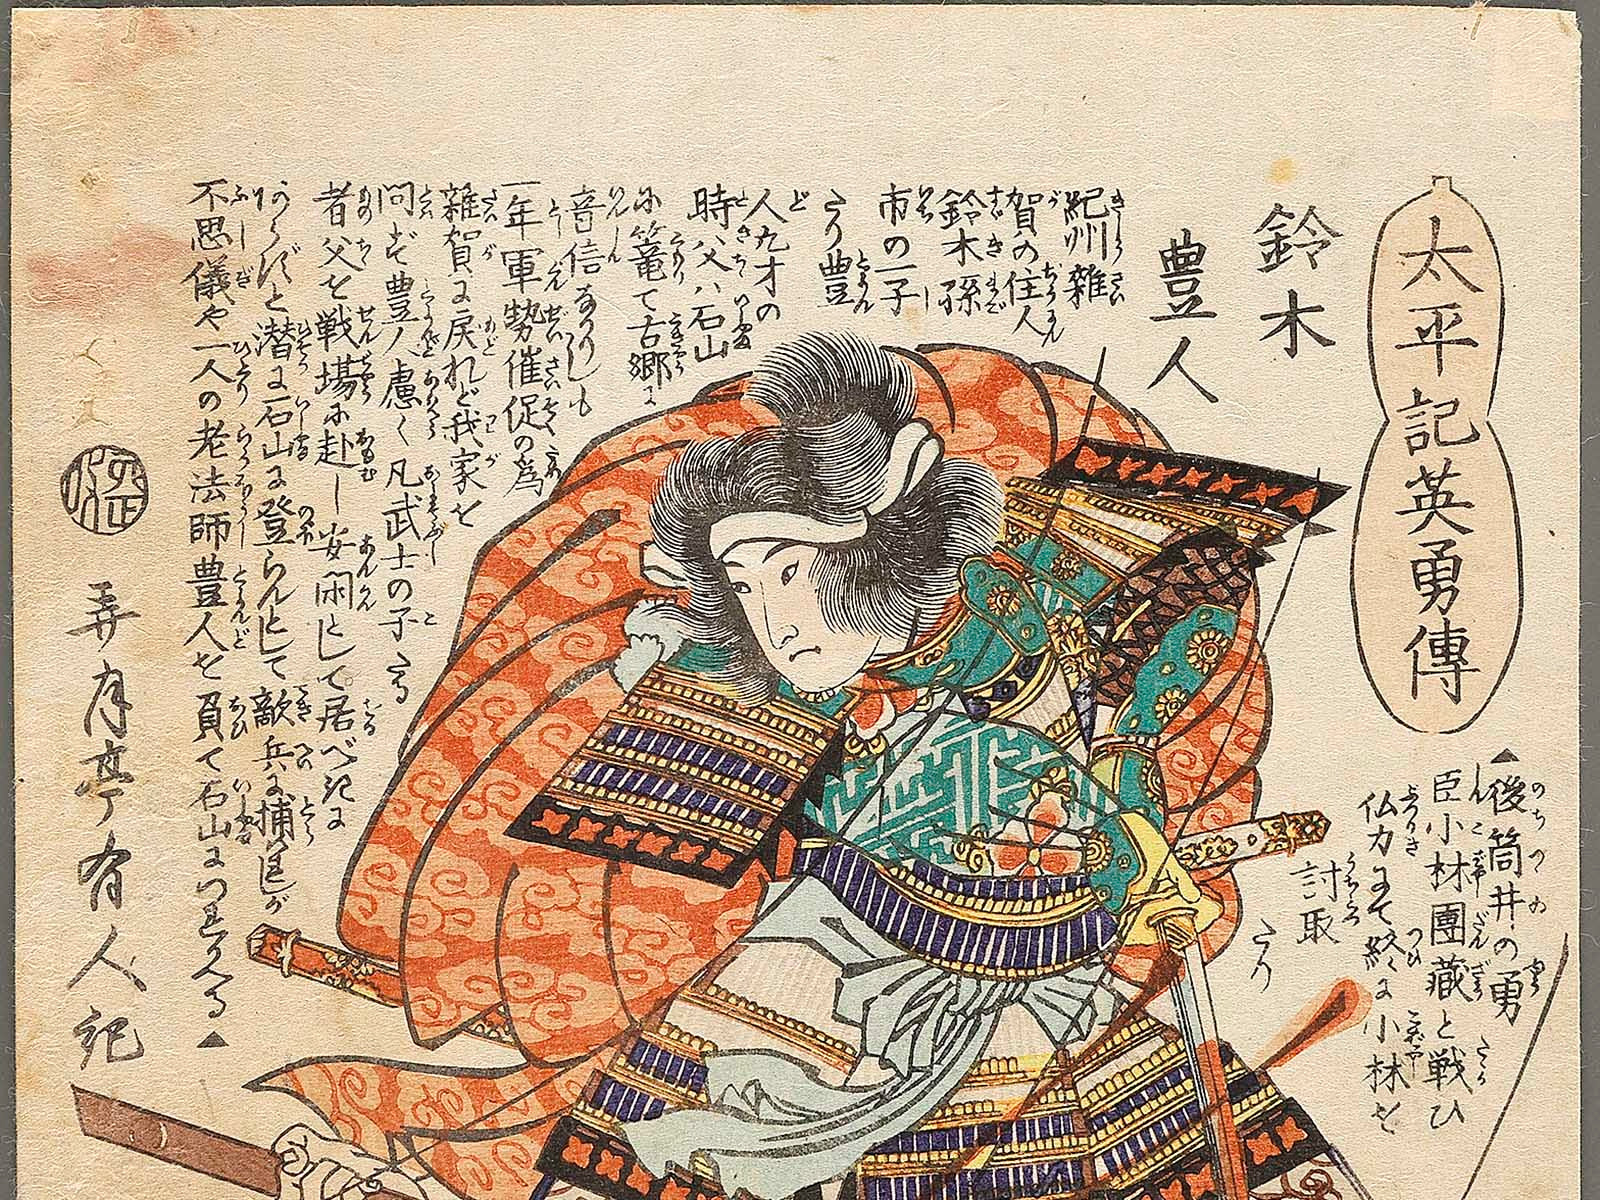 太平記英勇傳
鈴木
豊人
紀州雑
賀の住人
鈴木孫
市の一子
たり豊
人九才の
時父ハ石山
に篭て古郷に
音信なかりしも
一年軍勢催促の為
雑賀に戻れど我家を
問ず豊人慮く凡武士の子たる
者父を戦場に赴し安閑として居べきに
あらずと潜に石山に登らんとして敵兵に捕れしが
不思儀や一人の老法師豊人を負て石山につれ入る▲
▲後筒井の勇
臣小林團藏と戦ひ
仏力にて終に小林を
討取
たり
弄月亭有人記